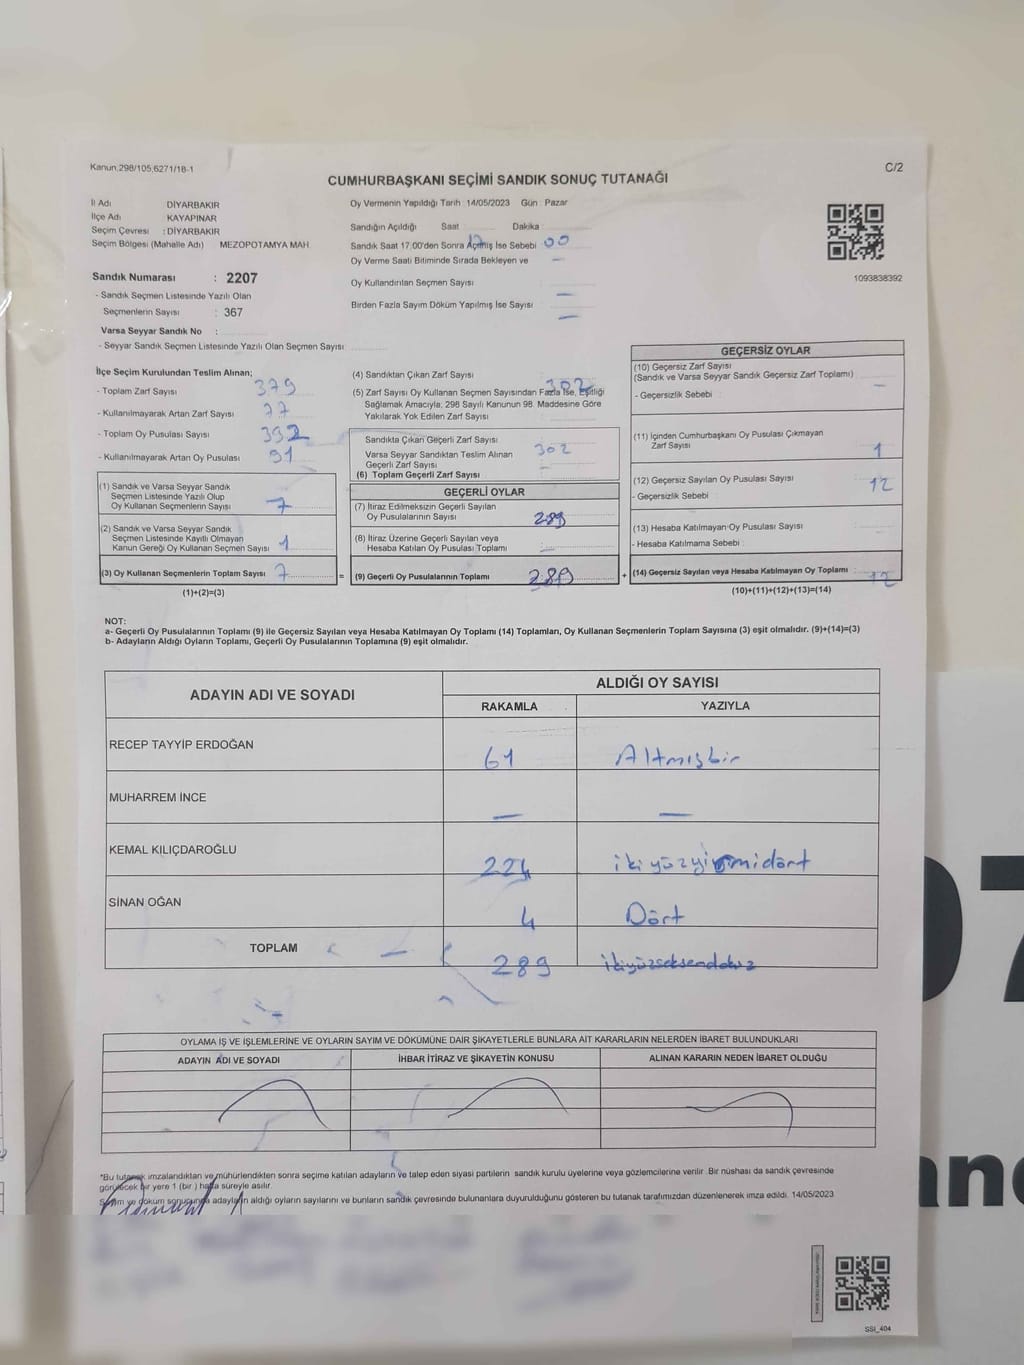 Kanun:298/105,6271/18-1
C/2
CUMHURBAŞKANI SEÇİMİ SANDIK SONUÇ TUTANAĞI
İl Adı DİYARBAKIR
İlçe Adı KAYAPINAR
Seçim Çevresi : DİYARBAKIR
Seçim Bölgesi (Mahalle Adı) MEZOPOTAMYA MAH.
Oy Vermenin Yapıldığı Tarih : 14/05/2023 Gün : Pazar
Sandığın Açıldığı Saat Dakika
Sandık Saat 17.00'den Sonra Açılmış İse Sebebi 00
Oy Verme Saati Bitiminde Sırada Bekleyen ve —
Oy Kullandırılan Seçmen Sayısı
Birden Fazla Sayım Döküm Yapılmış İse Sayısı —
—
1093838392
Sandık Numarası : 2207
- Sandık Seçmen Listesinde Yazılı Olan
Seçmenlerin Sayısı : 367
Varsa Seyyar Sandık No :
- Seyyar Sandık Seçmen Listesinde Yazılı Olan Seçmen Sayısı:
İlçe Seçim Kurulundan Teslim Alınan;
- Toplam Zarf Sayısı 379
- Kullanılmayarak Artan Zarf Sayısı 77
- Toplam Oy Pusulası Sayısı 392
- Kullanılmayarak Artan Oy Pusulası 91
(1) Sandık ve Varsa Seyyar Sandık
Seçmen Listesinde Yazılı Olup
Oy Kullanan Seçmenlerin Sayısı 7
(2) Sandık ve Varsa Seyyar Sandık
Seçmen Listesinde Kayıtlı Olmayan
Kanun Gereği Oy Kullanan Seçmen Sayısı 1
(3) Oy Kullanan Seçmenlerin Toplam Sayısı 7
=
(1)+(2)=(3)
(4) Sandıktan Çıkan Zarf Sayısı 302
(5) Zarf Sayısı Oy Kullanan Seçmen Sayısından Fazla İse, Eşitliği
Sağlamak Amacıyla, 298 Sayılı Kanunun 98. Maddesine Göre
Yakılarak Yok Edilen Zarf Sayısı
Sandıkta Çıkan Geçerli Zarf Sayısı
Varsa Seyyar Sandıktan Teslim Alınan 302
Geçerli Zarf Sayısı
(6) Toplam Geçerli Zarf Sayısı
GEÇERLİ OYLAR
(7) İtiraz Edilmeksizin Geçerli Sayılan
Oy Pusulalarının Sayısı 289
(8) İtiraz Üzerine Geçerli Sayılan veya
Hesaba Katılan Oy Pusulası Toplamı —
(9) Geçerli Oy Pusulalarının Toplamı 289
+
GEÇERSİZ OYLAR
(10) Geçersiz Zarf Sayısı
(Sandık ve Varsa Seyyar Sandık Geçersiz Zarf Toplamı) —
- Geçersizlik Sebebi :
(11) İçinden Cumhurbaşkanı Oy Pusulası Çıkmayan
Zarf Sayısı 1
(12) Geçersiz Sayılan Oy Pusulası Sayısı 12
- Geçersizlik Sebebi :
(13) Hesaba Katılmayan Oy Pusulası Sayısı
- Hesaba Katılmama Sebebi :
(14) Geçersiz Sayılan veya Hesaba Katılmayan Oy Toplamı 12
(10)+(11)+(12)+(13)=(14)
NOT:
a- Geçerli Oy Pusulalarının Toplamı (9) ile Geçersiz Sayılan veya Hesaba Katılmayan Oy Toplamı (14) Toplamları, Oy Kullanan Seçmenlerin Toplam Sayısına (3) eşit olmalıdır. (9)+(14)=(3)
b- Adayların Aldığı Oyların Toplamı, Geçerli Oy Pusulalarının Toplamına (9) eşit olmalıdır.
ADAYIN ADI VE SOYADI ALDIĞI OY SAYISI
RAKAMLA YAZIYLA
RECEP TAYYİP ERDOĞAN 61 Altmışbir
MUHARREM İNCE — —
KEMAL KILIÇDAROĞLU 224 ikiyüzyirmidört
SİNAN OĞAN 4 Dört
TOPLAM 289 ikiyüzseksendokuz
OYLAMA İŞ VE İŞLEMLERİNE VE OYLARIN SAYIM VE DÖKÜMÜNE DAİR ŞİKAYETLERLE BUNLARA AİT KARARLARIN NELERDEN İBARET BULUNDUKLARI
ADAYIN ADI VE SOYADI İHBAR İTİRAZ VE ŞİKAYETİN KONUSU ALINAN KARARIN NEDEN İBARET OLDUĞU
*Bu tutanak imzalandıktan ve mühürlendikten sonra seçime katılan adayların ve talep eden siyasi partilerin sandık kurulu üyelerine veya gözlemcilerine verilir. Bir nüshası da sandık çevresinde
görülecek bir yere 1 (bir) hafta süreyle asılır.
Sayım ve döküm sonucunda adayların aldığı oyların sayılarını ve bunların sandık çevresinde bulunanlara duyurulduğunu gösteren bu tutanak tarafımızdan düzenlenerek imza edildi. 14/05/2023
SSI_404